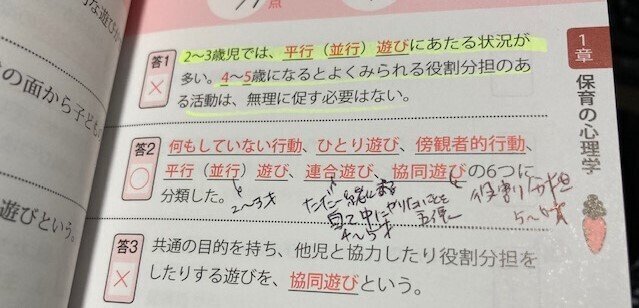 点
答1
×
2〜3歳児では、平行（並行）遊びにあたる状況が
多い。4〜5歳になるとよくみられる役割分担のあ
る活動は、無理に促す必要はない。
答2
○
何もしていない行動、ひとり遊び、傍観者的行動、
平行（並行）遊び、連合遊び、協同遊びの6つに
分類した。
2〜3才
4〜5才
役割分担
答3
×
共通の目的を持ち、他児と協力したり役割分担を
したりする遊びを、協同遊びという。
1章
保育の心理学
の面から子ども
遊びという。